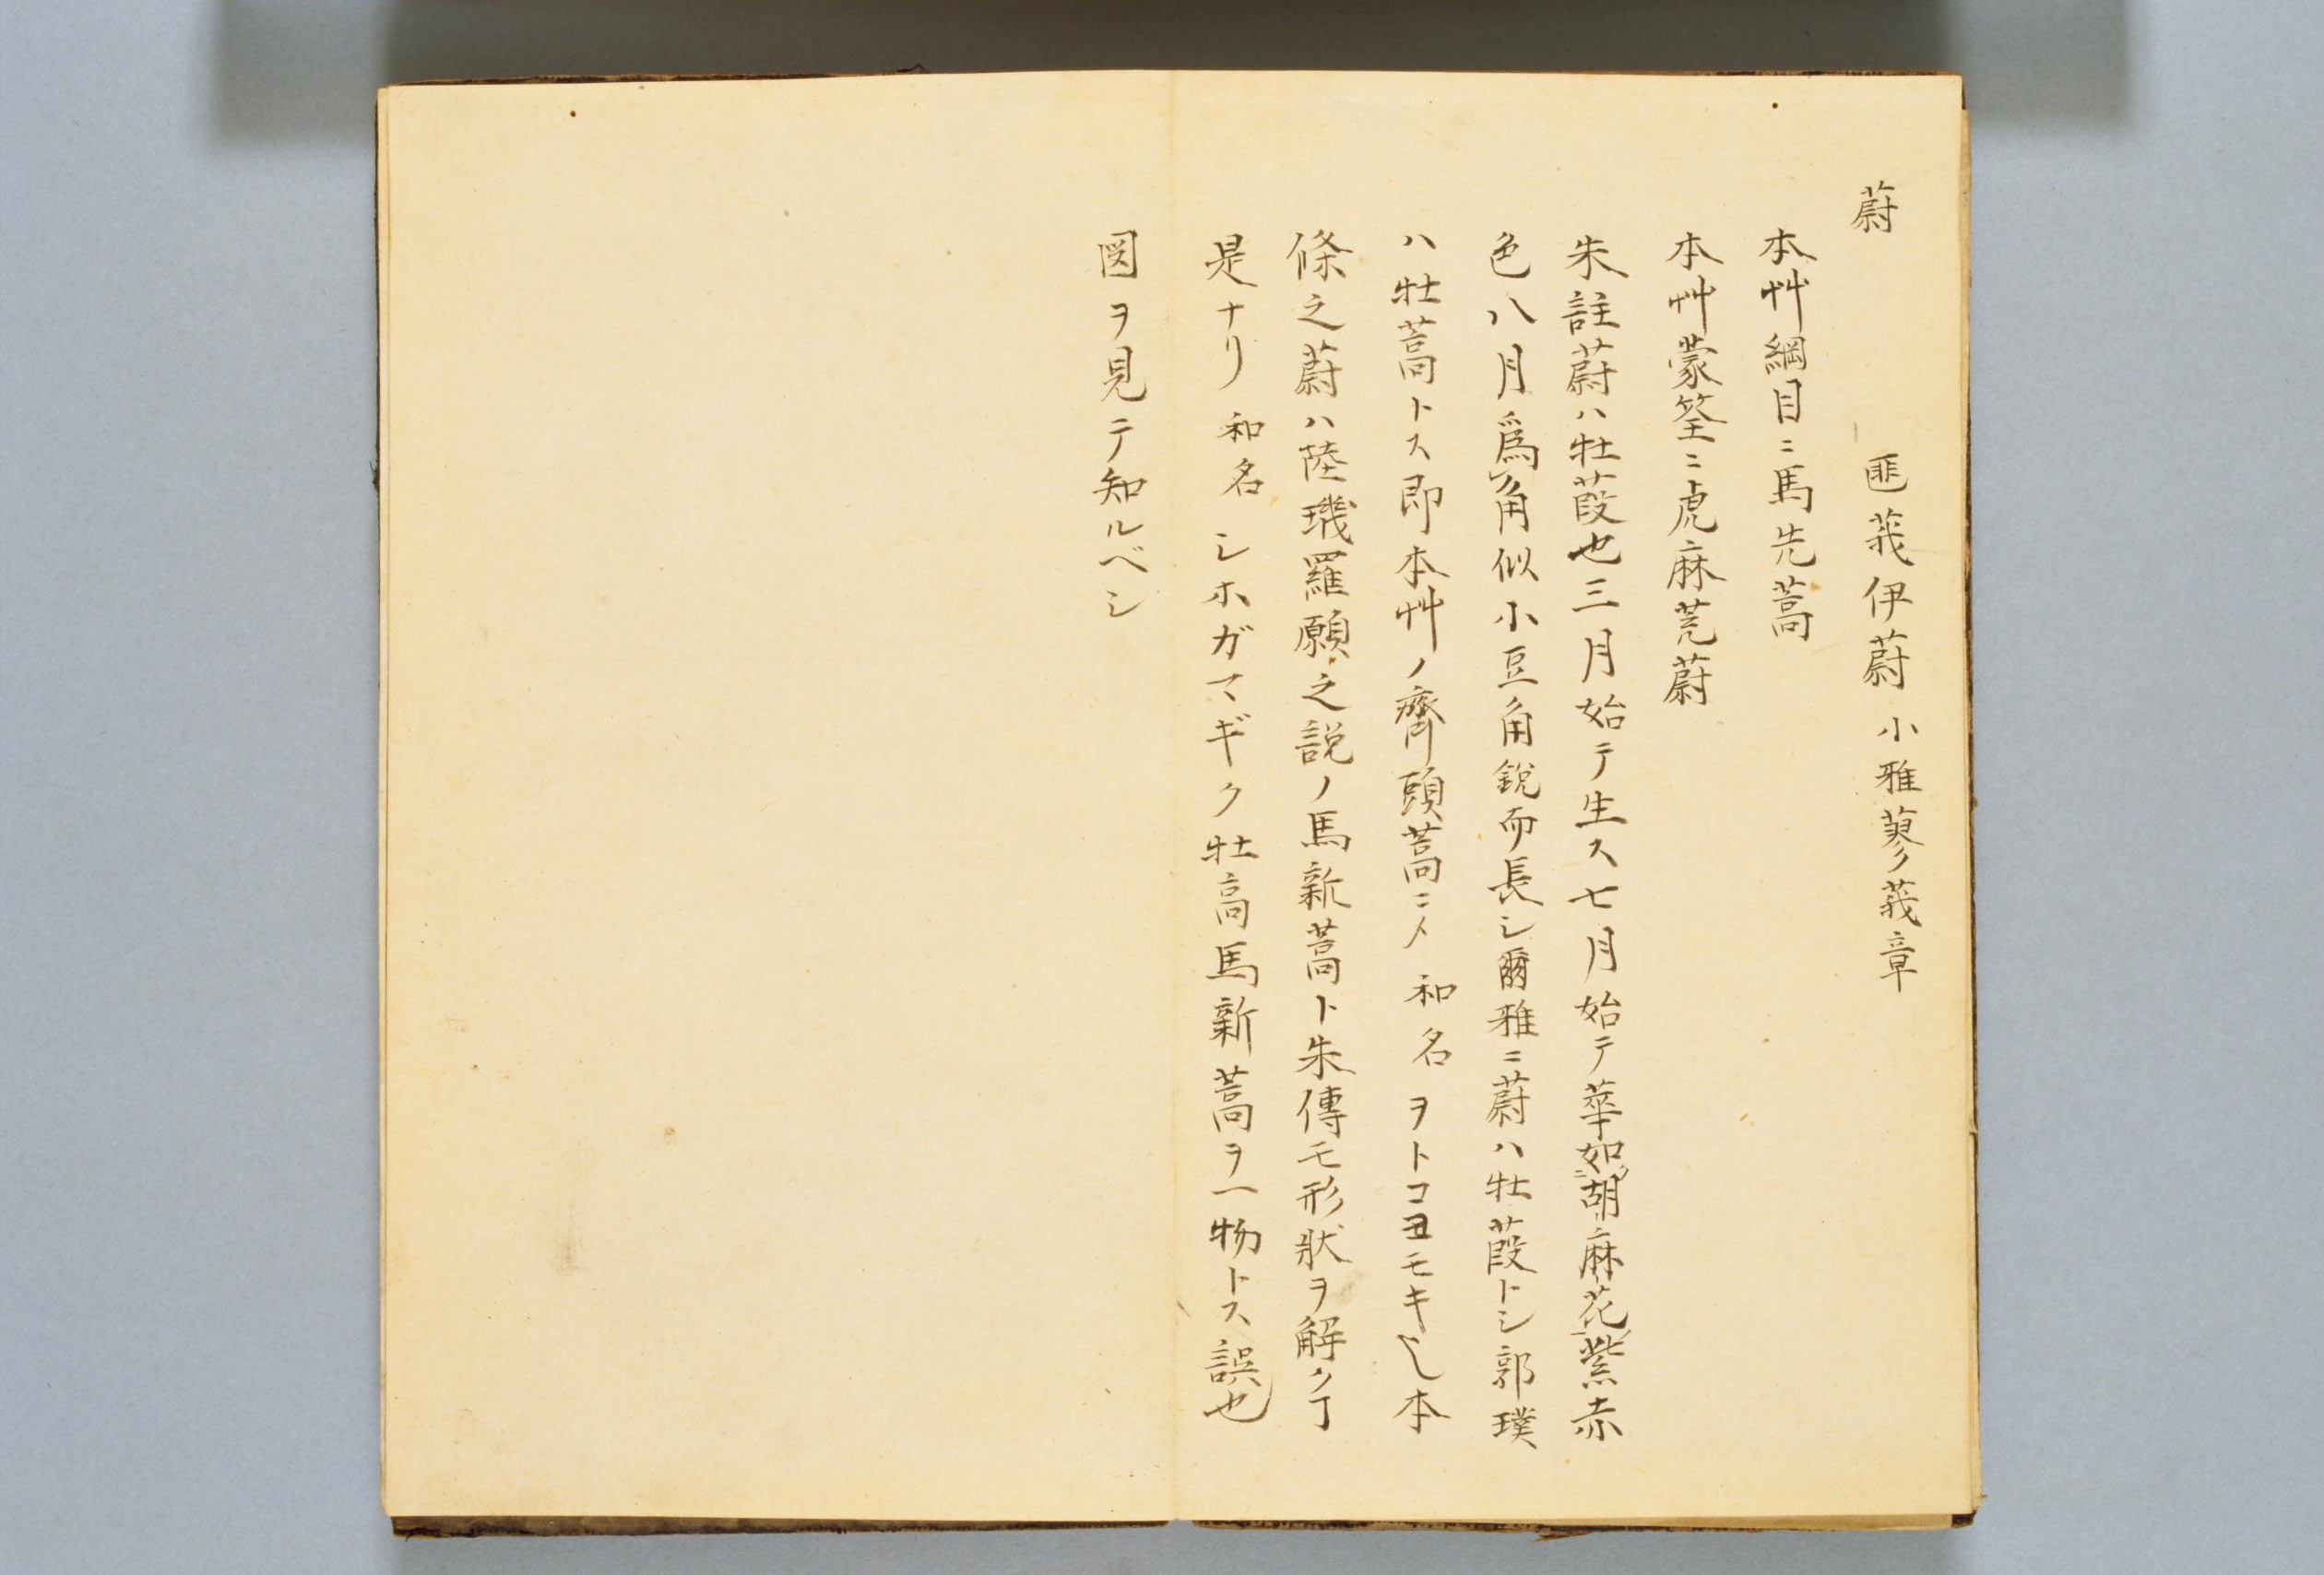 蔚　　匪莪伊蔚　小雅蓼莪章
本艸綱目ニ馬先蒿
本艸蒙筌ニ虎麻茺蔚
朱註蔚ハ牡菣也三月始テ生ス七月始テ華如胡麻花紫赤
色八月爲角似小豆角鋭而長シ爾雅ニ蔚ハ牡菣トシ郭璞
ハ牡蒿トス即本艸ノ齊頭蒿ニメ　和名　ヲトコヨモキ也本
條之蔚ハ陸璣羅願之説ノ馬新蒿ト朱傳モ形狀ヲ解クヿ
是ナリ　和名　シホガマギク牡高馬新蒿ヲ一物トス誤也
図ヲ見テ知ルベシ